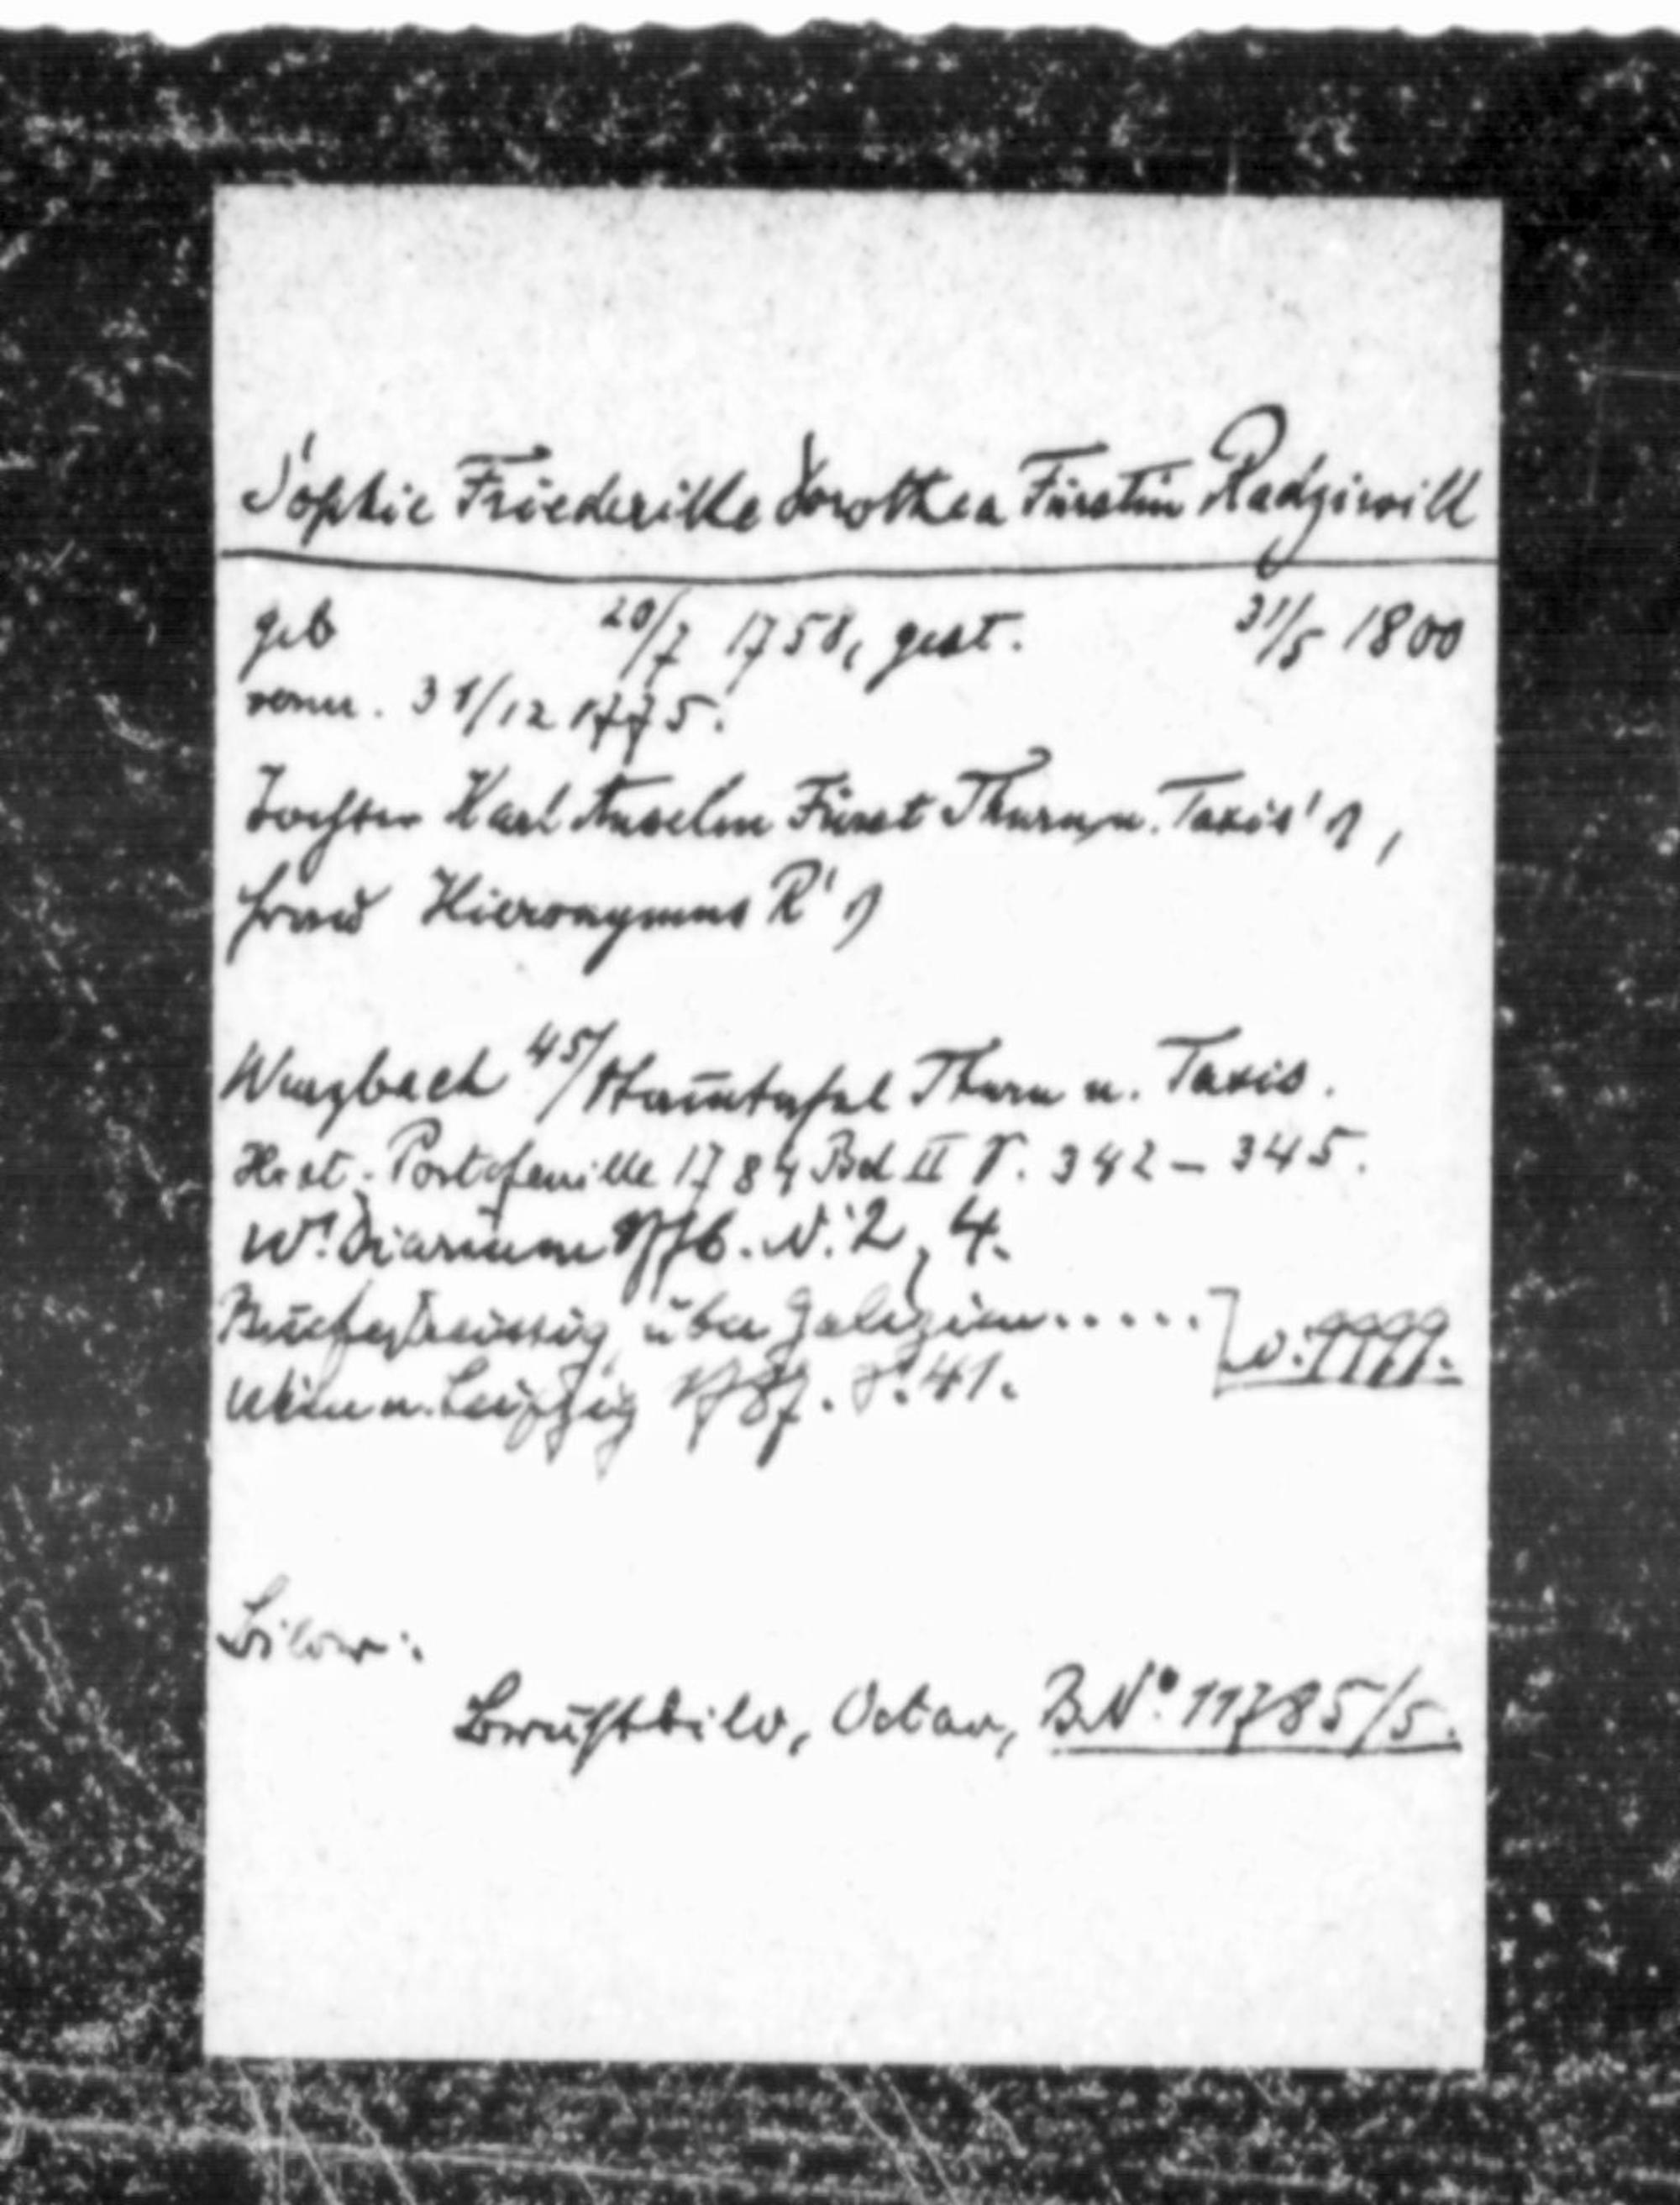 Sophie Friederike Dorothea Fürstin Radziwill
geb 20/7 1758, gest. 31/5 1800
verm. 31/12 1775.
Tochter Karl Anselm Fürst Thurn u. Taxis'
Frau Hieronymus R'
Wurzbach 45/Stam̄tafel Thurn u. Taxis.
Hist. Portefeuille 1784 Bd II S. 342 – 345.
W! Diarium 1776. N: 2, 4.
Briefe über Galizien.....
Wien u. Leipzig 1787. S. 41.
Bilder:
Brustbild, Octav, B.No. 11785/5.